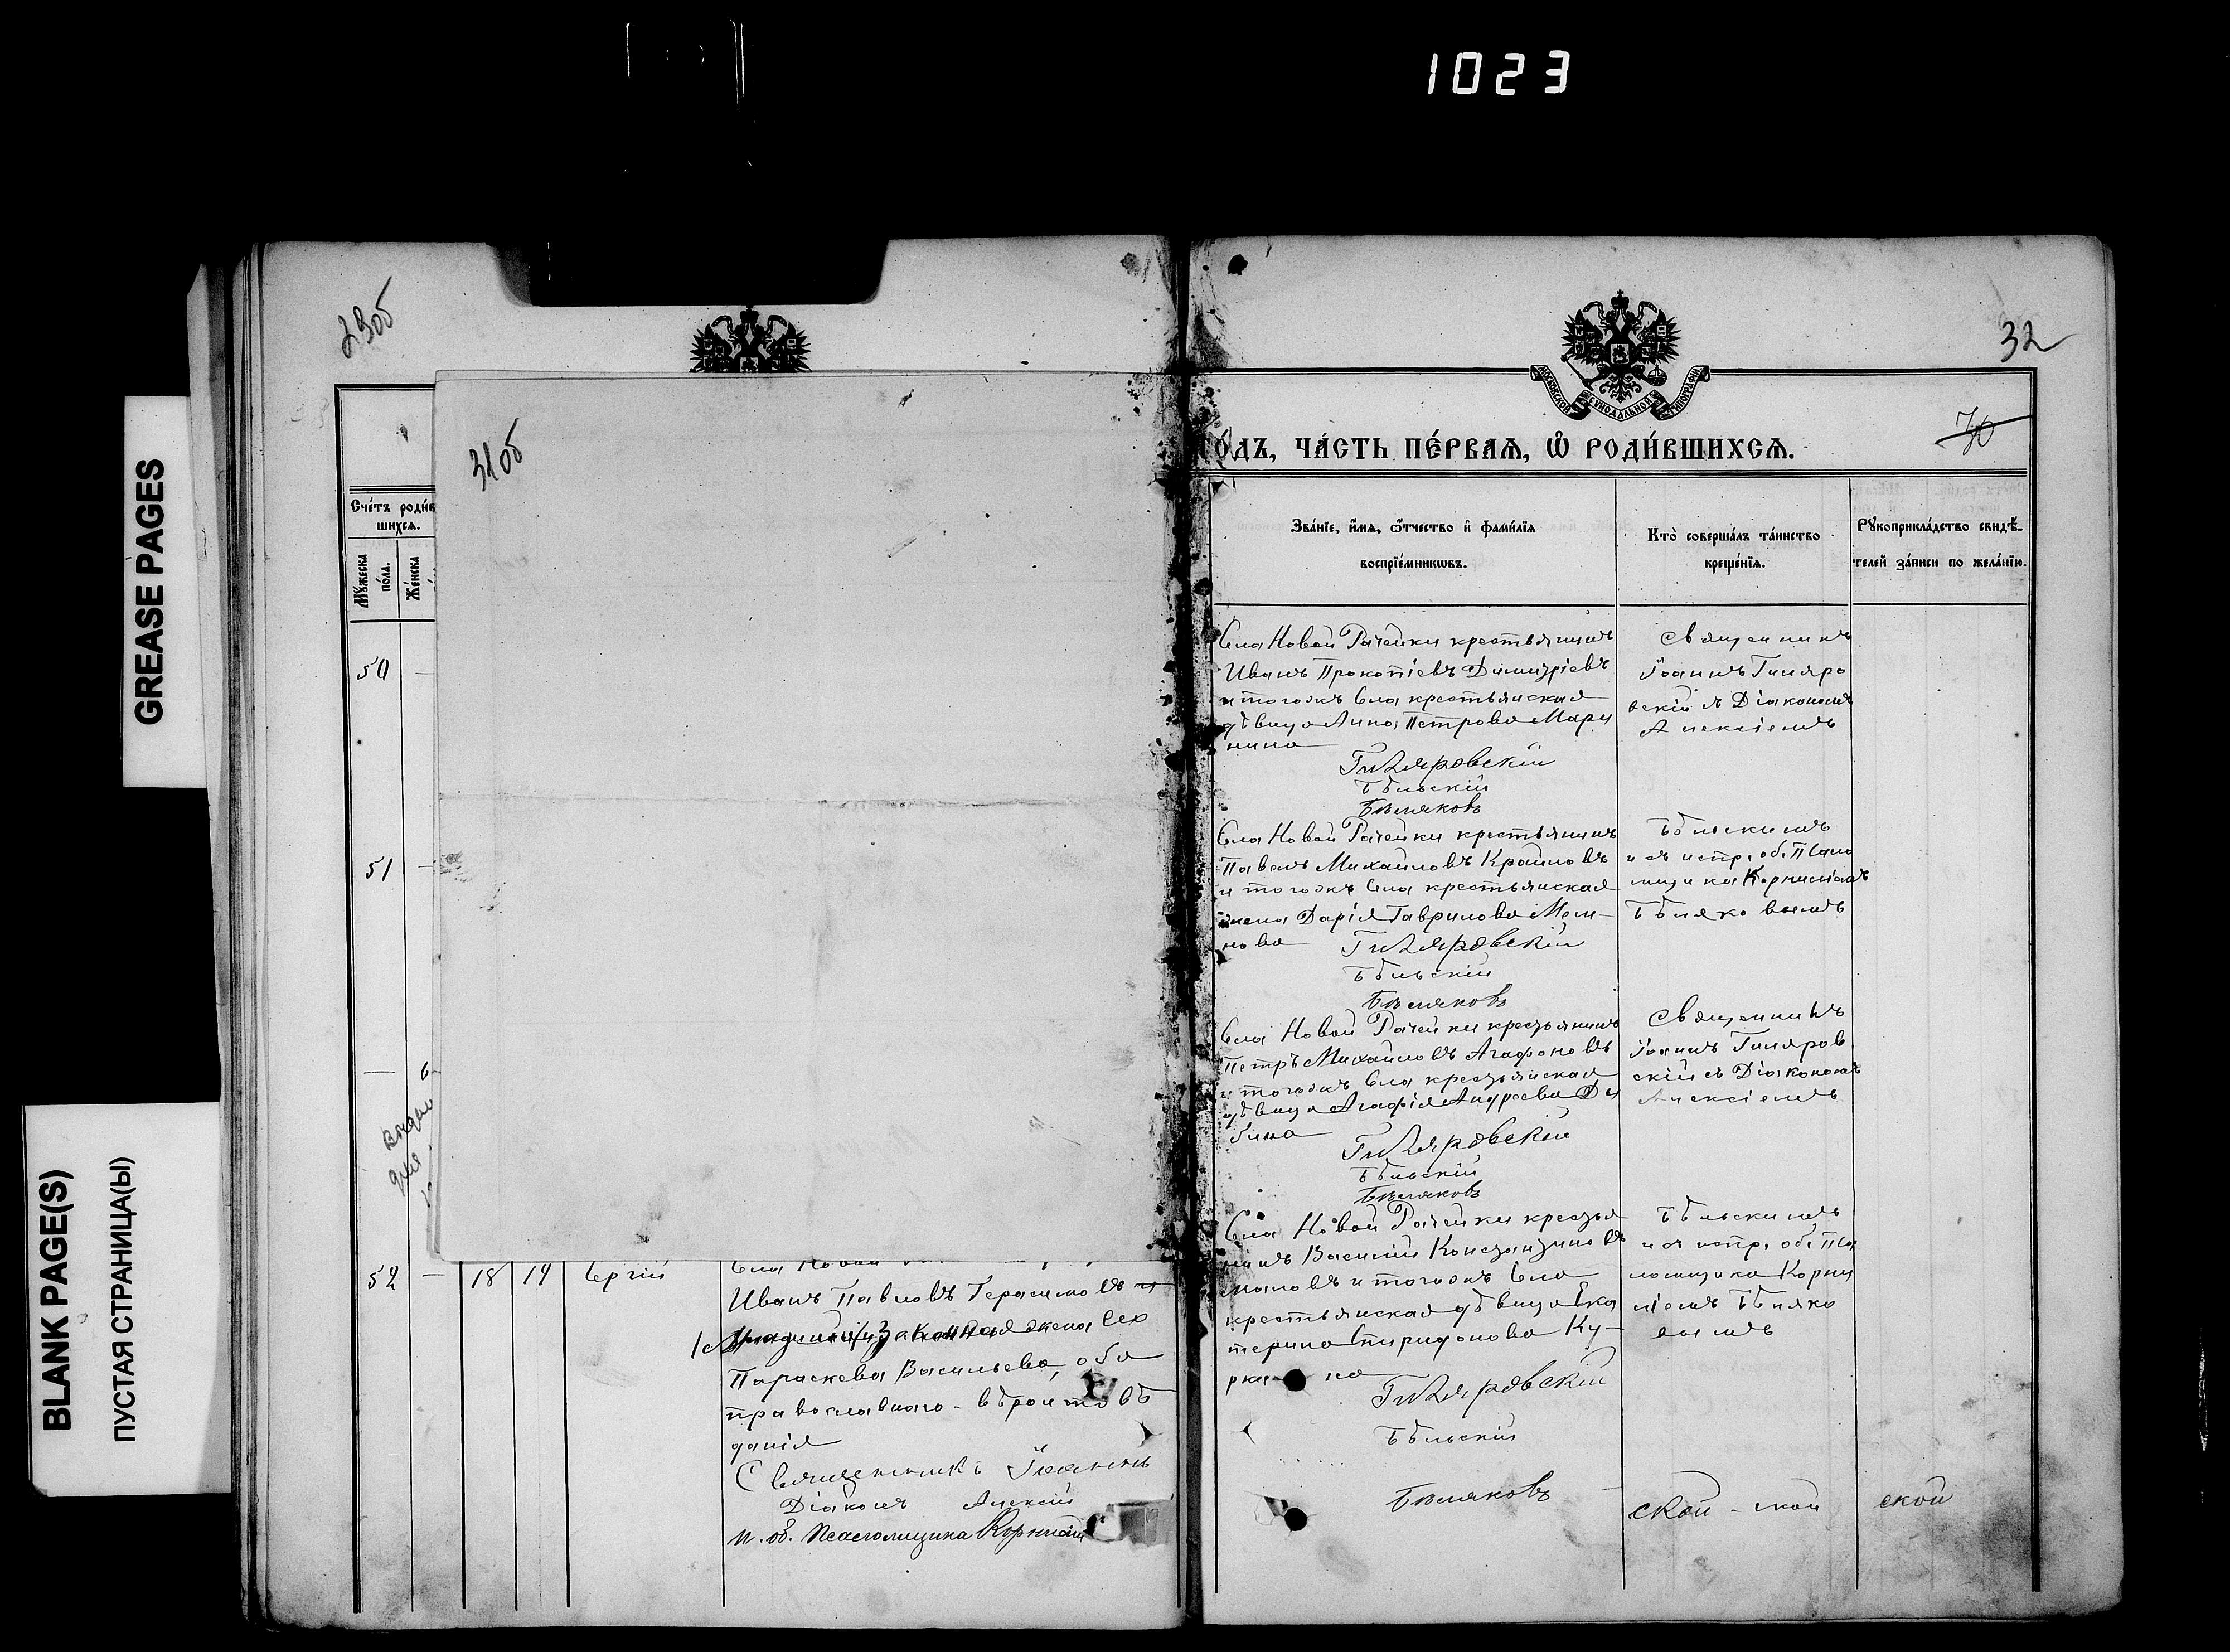 1023
GREASE PAGES
BLANK PAGE(S)
ПУСТАЯ СТРАНИЦА(Ы)
29об
31об
Сче́тъ роди́в
шихсѧ.
Мꙋжеска
по́ла.
Же́нска
50 —
51 —
— 6
52 — 18 19 Сергій
Села Новой
Иванъ Павловъ Герасимовъ и
законная жена его
Параскева Васильева, оба
православнаго вѣроисповѣ
данія
Священникъ Іоаннъ
Діаконъ Алексій
и. об. Псаломщика Корнилій
32
МОСКОВСКОЙ СѴНОДАЛЬНОЙ ТИПОГРАФІИ
70
го́дъ, ча́сть пе́рваѧ, ѡ҆ роди́вшихсѧ.
Зва́нїе, и҆́мѧ, ѻ҆́тчество и҆ фами́лїѧ
воспрїе́мникѡвъ.
Кто̀ соверша́лъ та́инство
креще́нїѧ.
Рꙋкоприкла́дство свидѣ́-
телей за́писи по жела́нїю.
Села Новой Рачейки крестьянинъ
Иванъ Прокопіевъ Димитріевъ
и тогожъ села крестьянская
дѣвица Анна Петрова Мару
нина
Гиляровскій
Бѣльскій
Бѣляковъ
Священникъ
Іоаннъ Гиляро
вскій съ Діакономъ
Алексіемъ
Села Новой Рачейки крестьянинъ
Павелъ Михайловъ Крайновъ
и тогожъ села крестьянская
жена Дарія Гаврилова Мель-
нова
Гиляровскій
Бѣльскій
Бѣляковъ
Бѣльскимъ
и съ испр. об. Псало
мщика Корниліемъ
Бѣляковымъ
Села Новой Рачейки крестьянинъ
Петръ Михайловъ Агафоновъ
и тогожъ села крестьянская
дѣвица Агафія Андреева Ды
бина
Гиляровскій
Бѣльскій
Бѣляковъ
Священникъ
Іоаннъ Гиляров
скій съ Діакономъ
Алексіемъ
Села Новой Рачейки крестья
нинъ Василій Константиновъ
и тогожъ села
крестьянская дѣвица Ека
терина Спиридонова Ку-
рки на
Гиляровскій
Бѣльскій
Бѣляковъ
Бѣльскимъ
и съ испр. об. Пса
ломщика Корни
ліемъ Бѣляко
вымъ
ской - ской ской